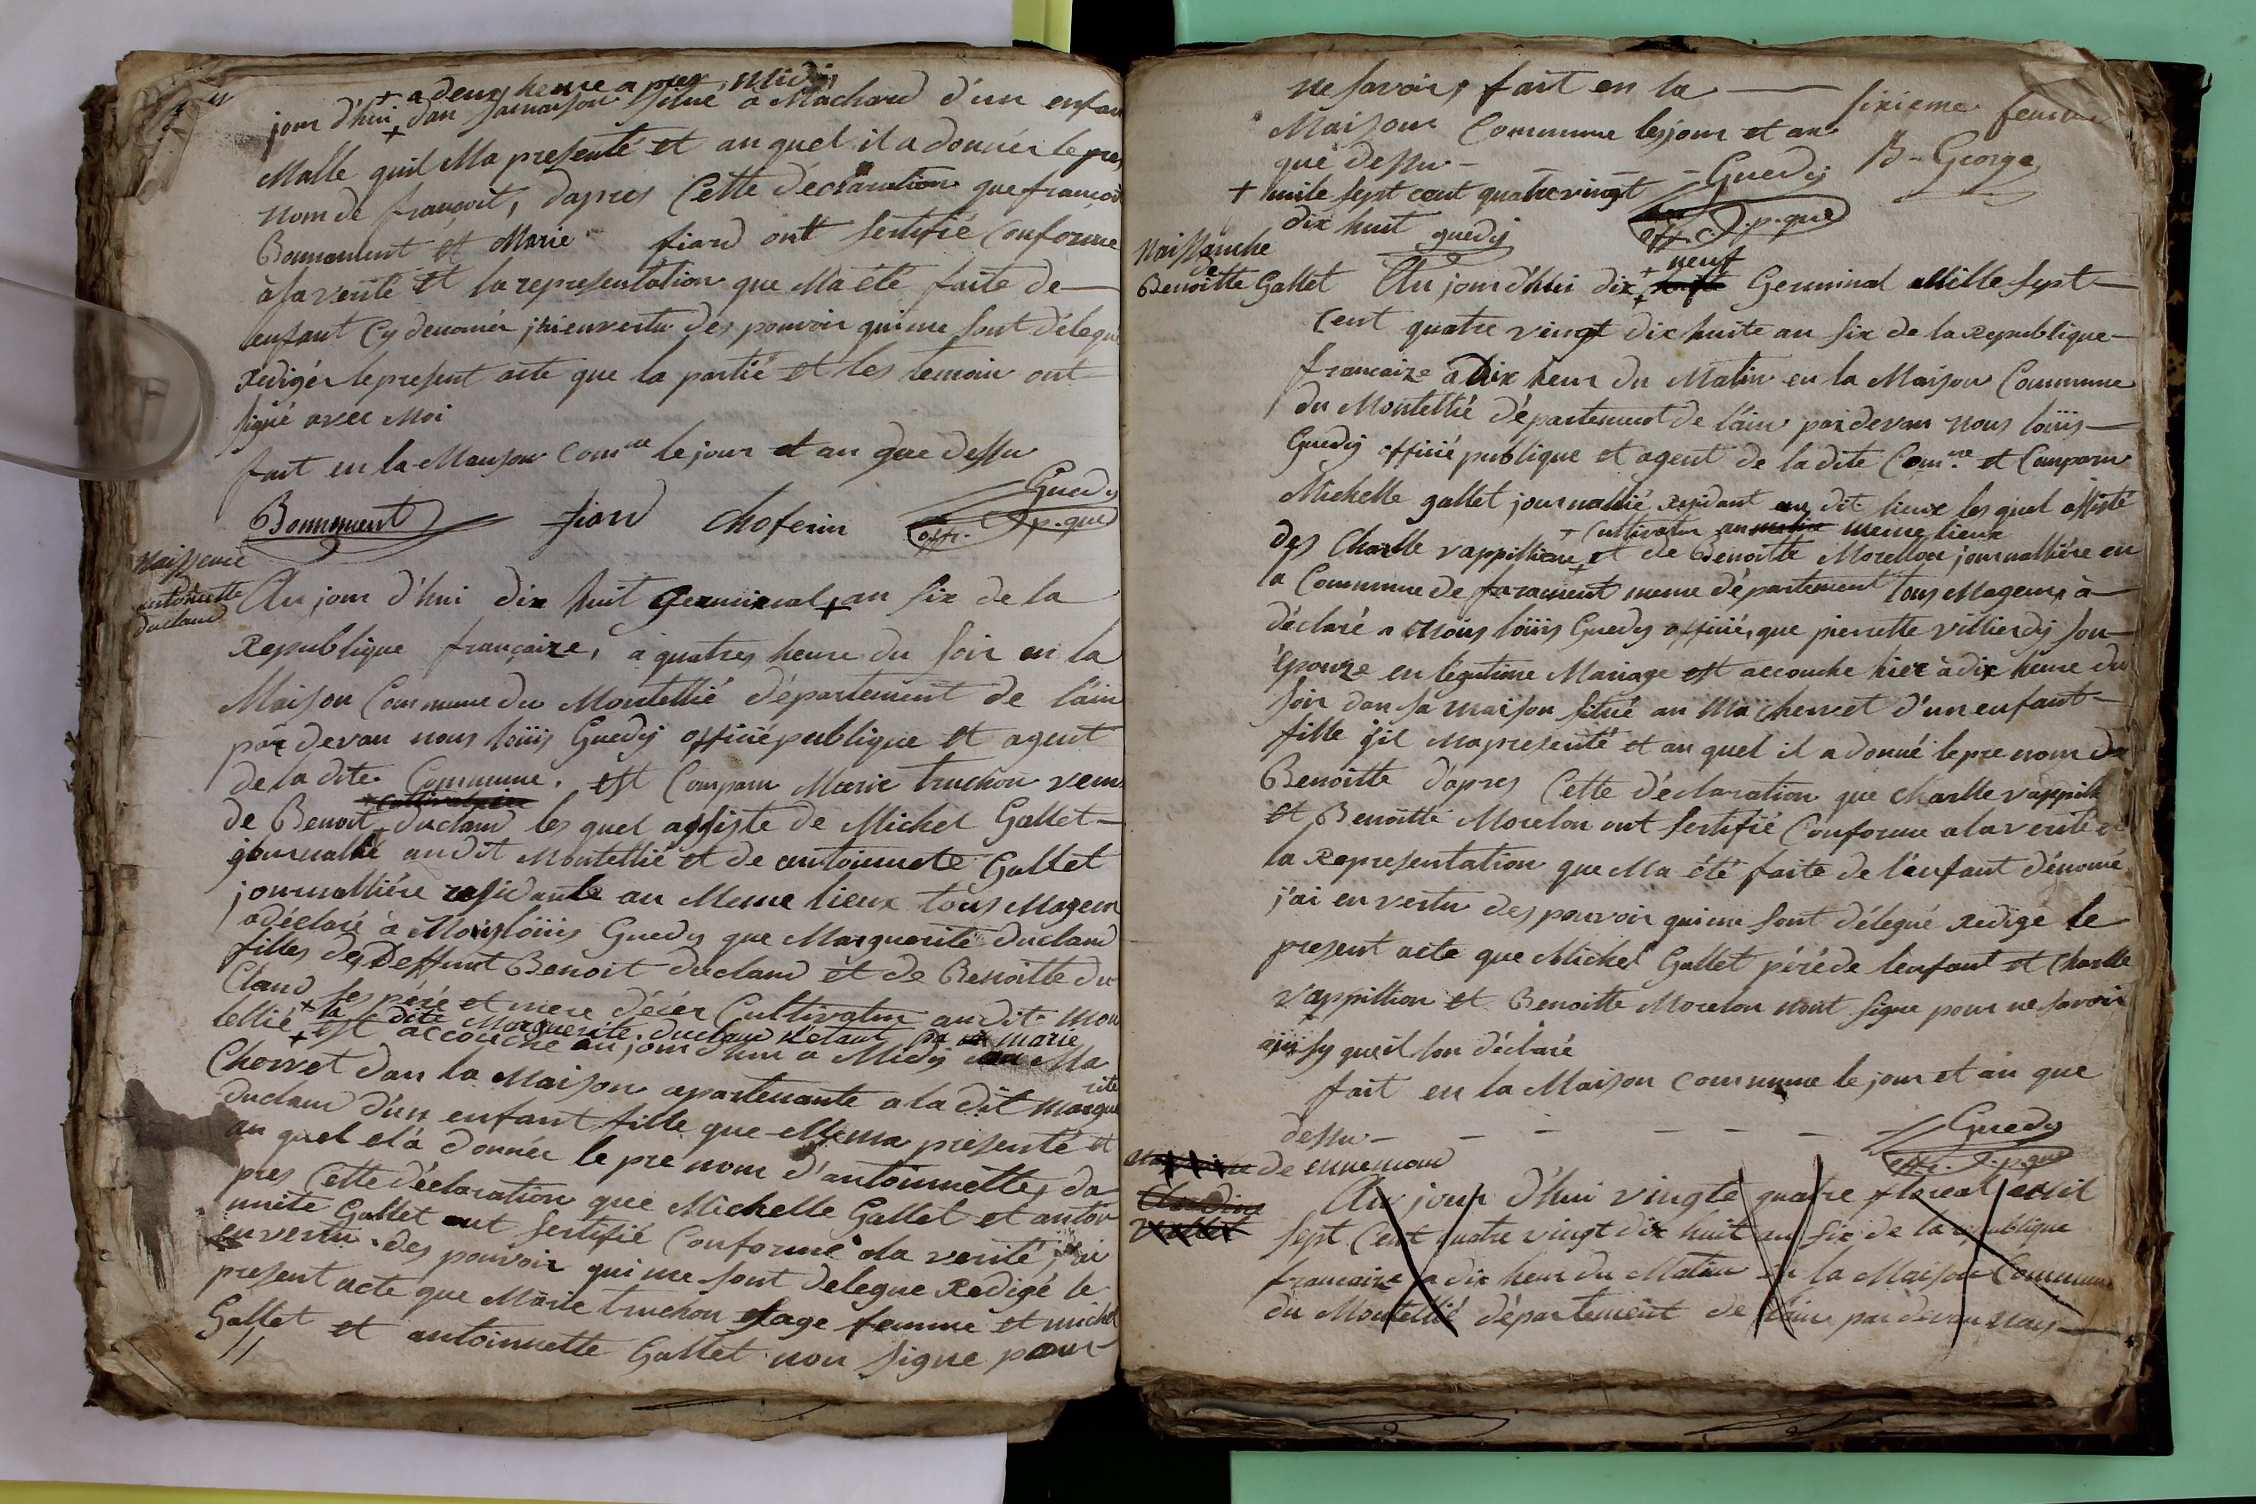 + a deux heure a pres midi
jour d'hui + dan sa maison situé a Machard d'un enfan
Malle quil Ma presenté et au quel il a donnér le pre
nom de françoit, dapres Cette déclaration que françois
Bonnement et Marie fiard ontt sertifié Conforme
à la verité et la representation que Ma été faite de
lenfant Cy denomér j'ai en vertu des pouvoir qui me sont délegué
Redigér le present acte que la partié et les temoin ont
signé avec Moi
fait en la Maison Comne le jour et an que dessu
Bonnement fiard Choferin Guedy
offi. p.que
Naissence
antoinette
duclaud
Au jour d'hui dix huit Germinal + an six de la
Republique françaize, a quatres heure du soir en la
Maison Commune du Montellié département de l'ain
par devan nous loüis Guedy officié publique et agent
de la dite Commune, est Comparu Marie truchon veuve
de Benoit duclaud les quel assiste de Michel Gallet
journallié audit Montellié et de antoinnete Gallet
journalliére residante au Meme lieux tous Mageur
a déclaré à Moy loüis Guedy que Marguerite duclaud
filles des Deffunt Benoit duclaud et de Benoitte du
Claud ses péré et mere décér Cultivateur audit Mon
+ la dite Marguerite duclaud n'étant pa marie
tellié + est accouche aujourd'hui a Midy au Ma
Cherret dan la Maison apartenante a la dit Margue
rite
duclaud d'un enfant fille que Ma presenté et
au quel el a donnér le pre nom d'antoinnette, da
pres Cette déclaration que Michelle Gallet et antoi
nnette Gallet ont sertifié Conforme a la verité, j'ai
en vertu des pouvoir qui me sont delegue Redigé le
present acte que Marie truchon sage femme et michel
Gallet et antoinnette Gallet non signe pour
ne savoir, fait en la
Maison Commune les jour et an
que dessu
sixieme feuille
B. George
Guedy
off. p.que
+ mile sept cent quatre vingt
dix huit guedy
Naissanche
de
Benoitte Gallet
neuf
Au jour d'hui dix + Germinal Mille sept
Cent quatre vingt dix huite an six de la Republique
francaize a Dix heur du Matin en la Maison Commune
du Montellié département de l'ain par devan nous loüis
Guedy officié publique et agent de la dite Comne et Comparu
Michelle gallet journallié residant au dit lieux les quel assisté
+ Cultivateur au meme lieux
des Charlle rappillion + et de Benoitte Morellon journalliére en
la Commune de faramient meme département tous Mageur à
déclaré a Mois loüis Guedy officié, que pierrette villierdy son
épouze en légitime Mariage est accouche hier à dix heure du
soir dan sa maison situé au Ma cherret d'un enfant
fille qil Ma presenté et au quel il a donné le pre nom de
Benoitte dapres Cette déclaration que charlle rappill
et Benoitte Morelon ont sertifié Conforme a la verité et
la Representation que Ma été faite de l'enfant dénomé
j'ai en vertu des pouvoir qui me sont délegué Redigé le
present acte que Michel Gallet péré de lenfant et Charlle
rappillion et Benoitte Morelon nont signe pour ne savoir
ainsy queil lon déclaré
fait en la Maison Commune le jour et an que
dessu
Guedy
offi. p.que
de ennemond
Claudine
Au jour d'hui vingte quatre floreal Mil
sept Cent quatre vingt dix huit an six de la republique
francaize a dix heur du Matin en la Maison Commune
du Montellié département de l'ain par devan nous